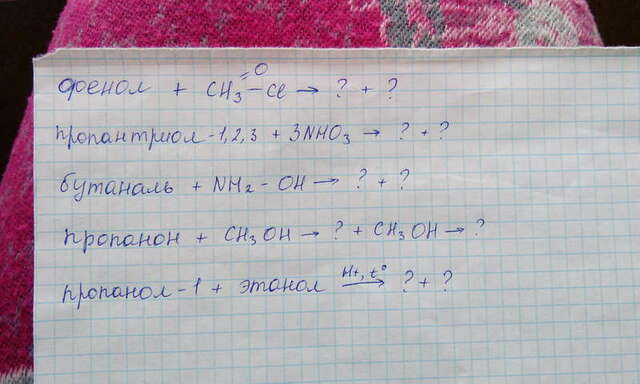 фенол + CH3=O-Cl → ? + ?
пропантриол-1,2,3 + 3NHO3 → ? + ?
бутаналь + NH2-OH → ? + ?
пропанон + CH3OH → ? + CH3OH → ?
пропанол-1 + этанол H+, t° → ? + ?